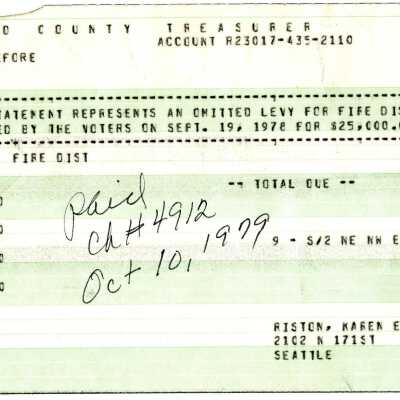 O COUNTY TREASURER
ACCOUNT R23017-435-2110
EFORE
TATEMENT REPRESENTS AN OMITTED LEVY FOR FIRE DIS
ED BY THE VOTERS ON SEPT. 19, 1978 FOR $25,000.
FIRE DIST
-- TOTAL DUE --
Paid
Ch# 4912
Oct 10, 1979
9 - S/2 NE NW E
RISTON, KAREN E
2102 N 171ST
SEATTLE